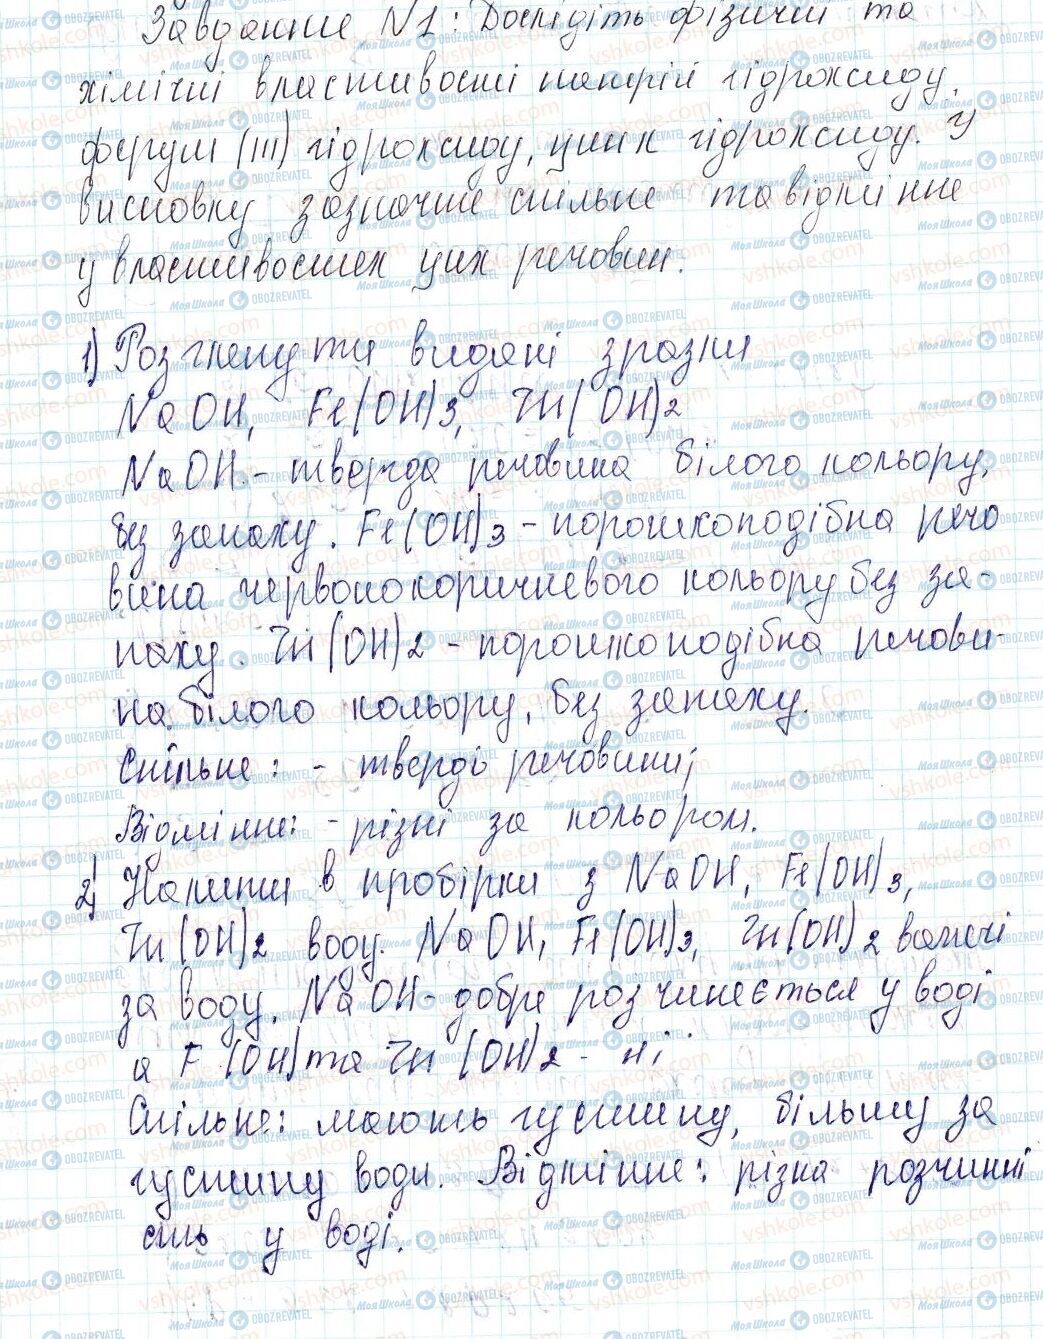 Завдання №1: Дослідіть фізичні та
хімічні властивості натрій гідроксиду,
ферум (III) гідроксиду, цинк гідроксиду. У
висновку зазначте спільне та відмінне
у властивостях цих речовин.
1) Розглянути видані зразки
NaOH, Fe(OH)3, Zn(OH)2
NaOH - тверда речовина білого кольору,
без запаху. Fe(OH)3 - порошкоподібна речо
вина червонокоричневого кольору без за-
паху. Zn(OH)2 - порошкоподібна речови-
на білого кольору, без запаху.
Спільне: - тверді речовини;
Відмінне: - різні за кольором.
2) Налити в пробірки з NaOH, Fe(OH)3,
Zn(OH)2 воду. NaOH, Fe(OH)3, Zn(OH)2 важчі
за воду. NaOH - добре розчиняється у воді
а F (OH) та Zn (OH)2 - ні
Спільне: мають густину, більшу за
густину води. Відмінне: різна розчинні
сть у воді.